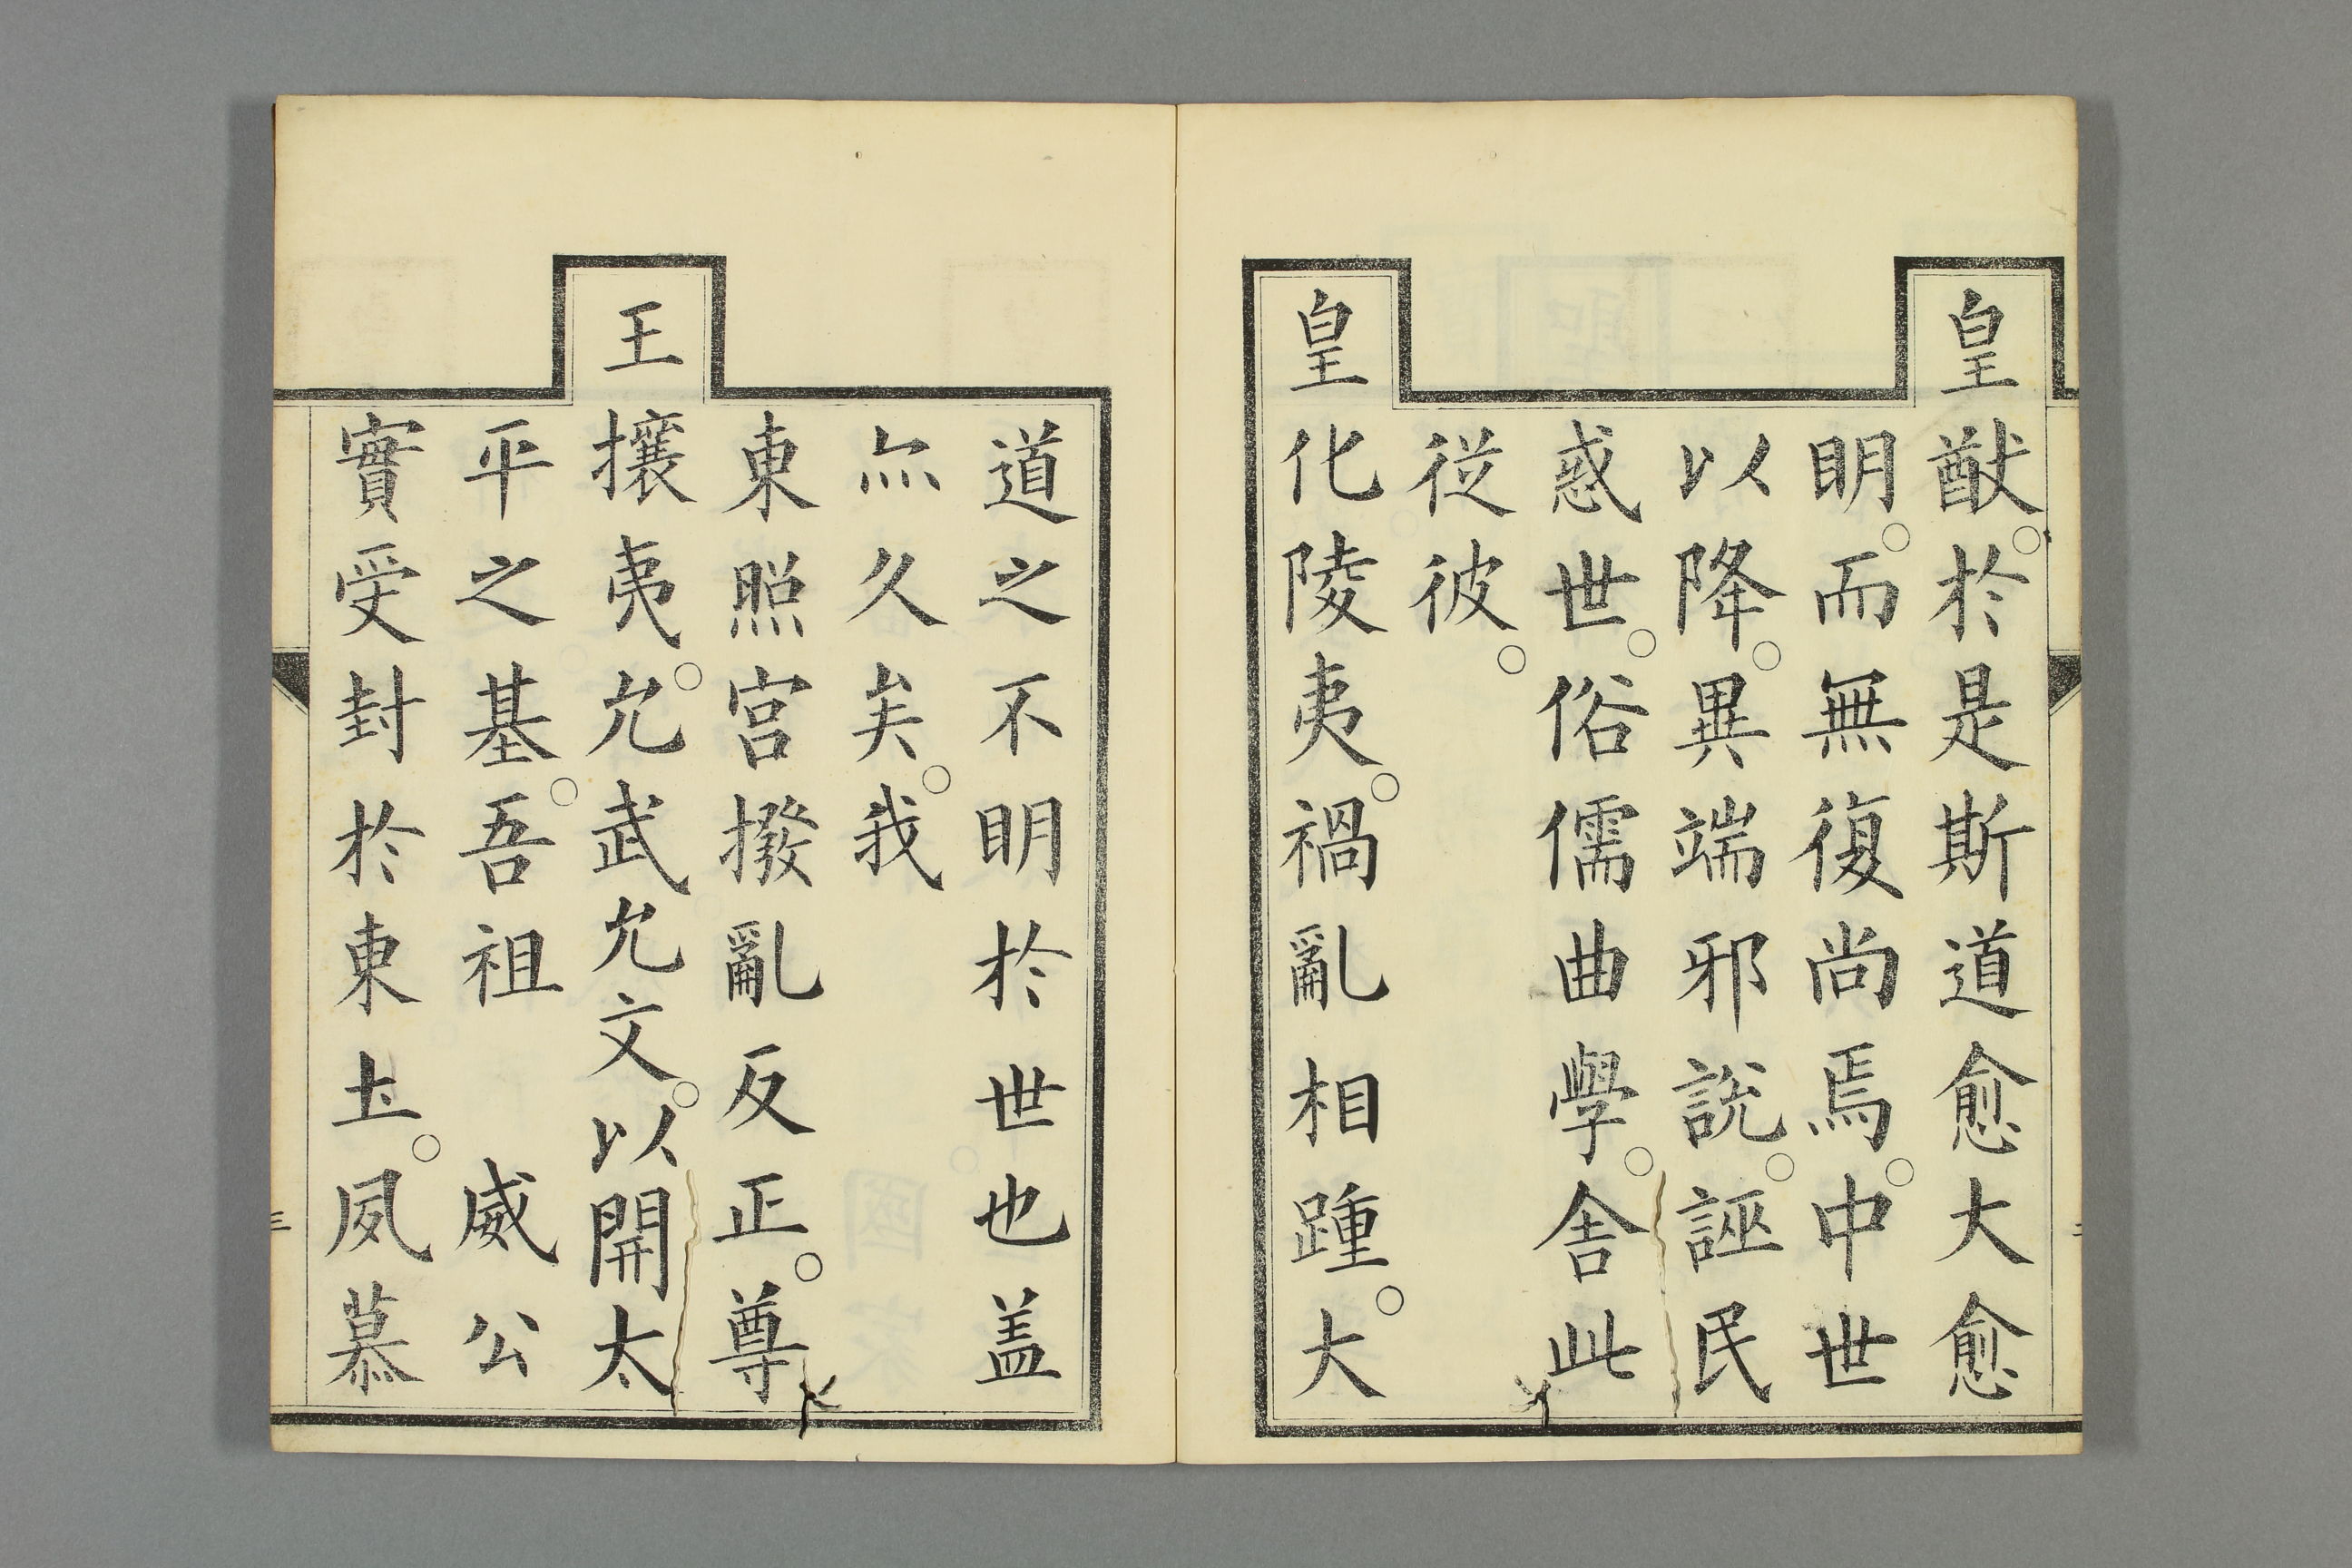 皇猷。於是斯道愈大愈
明。而無復尚焉。中世
以降。異端邪說。誣民
惑世。俗儒曲學。舎此
從彼。
皇化陵夷。禍亂相踵。大
道之不明於世也盖
亦久矣。我
東照宮撥亂反正。尊
王攘夷。允武允文。以開太
平之基。吾祖 威公
實受封於東圡。夙慕
三